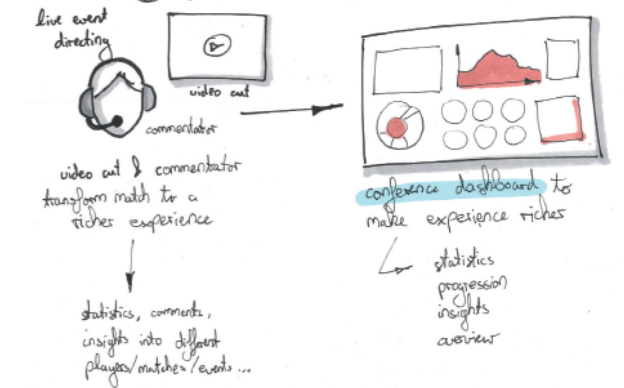 live event
directing
video cut
commentator
video cut & commentator
transform match to a
richer experience
statistics, comments,
insights into different
players/matches/events...
conference dashboard to
make experience richer
statistics
progression
insights
overview